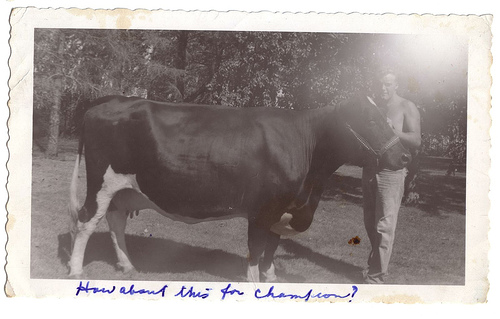 How about this for champion?